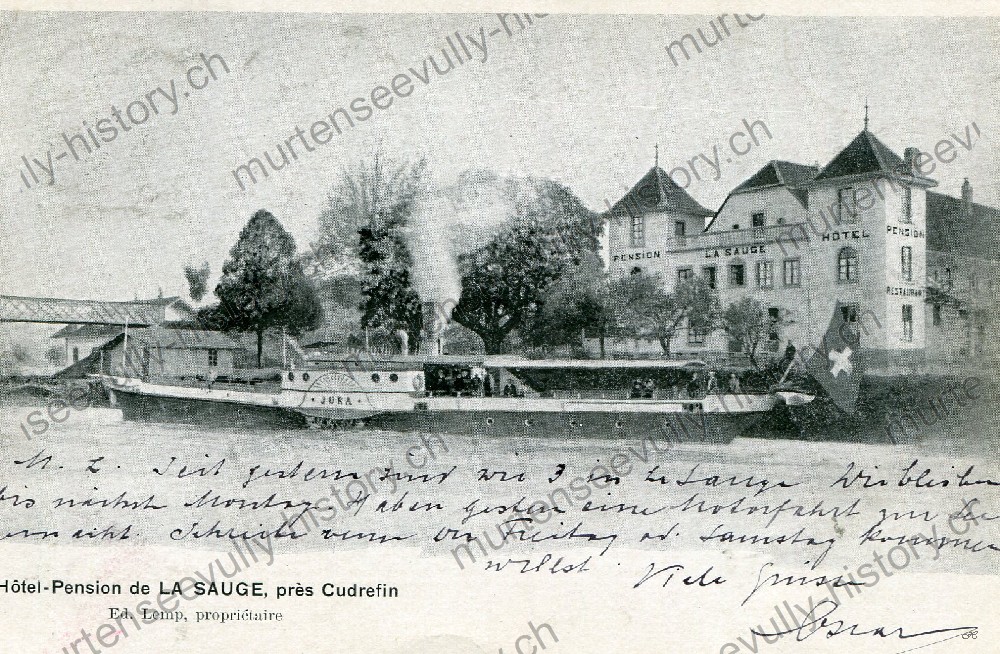 PENSION LA SAUGE HÔTEL PENSION
RESTAURANT
JURA
M. L. Seit gestern sind wir 3 in La Sauge. Wir bleiben
bis nächst Montag. Haben gestern eine Motorfahrt zur
gemacht. Schreibe wenn du Freitag od. Samstag kommen
willst. Viele Grüsse
Oscar
Hôtel-Pension de LA SAUGE, près Cudrefin
Ed. Lemp, propriétaire
murtenseevully-history.ch